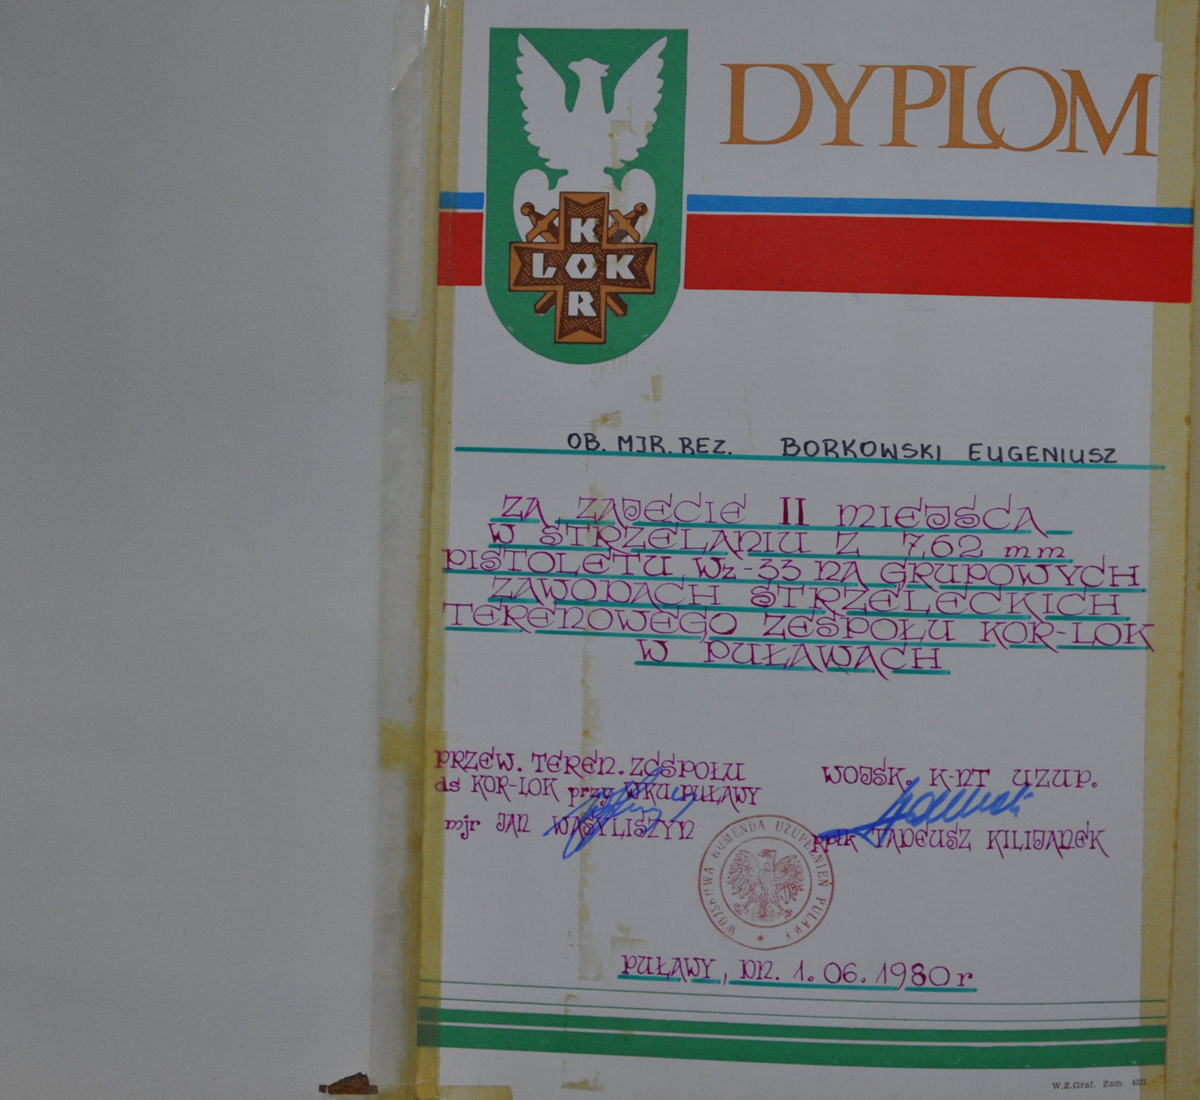 DYPLOM
K
LOK
R
OB. MJR. REZ. BORKOWSKI EUGENIUSZ
ZA ZAJĘCIE II MIEJSCA
W STRZELANIU Z 7,62 mm
PISTOLETU Wz-33 NA GRUPOWYCH
ZAWODACH STRZELECKICH
TERENOWEGO ZESPOŁU KOR-LOK
W PUŁAWACH
PRZEW. TEREN. ZESPOŁU
ds KOR-LOK przy WKU PUŁAWY
mjr JAN WASYLISZYN
WOJSK. K-NT UZUP.
ppłk TADEUSZ KILIJANEK
WOJSKOWA KOMENDA UZUPEŁNIEŃ PUŁAWY
PUŁAWY, DN. 1.06.1980 r
W.Z.Graf. Zam. 4321